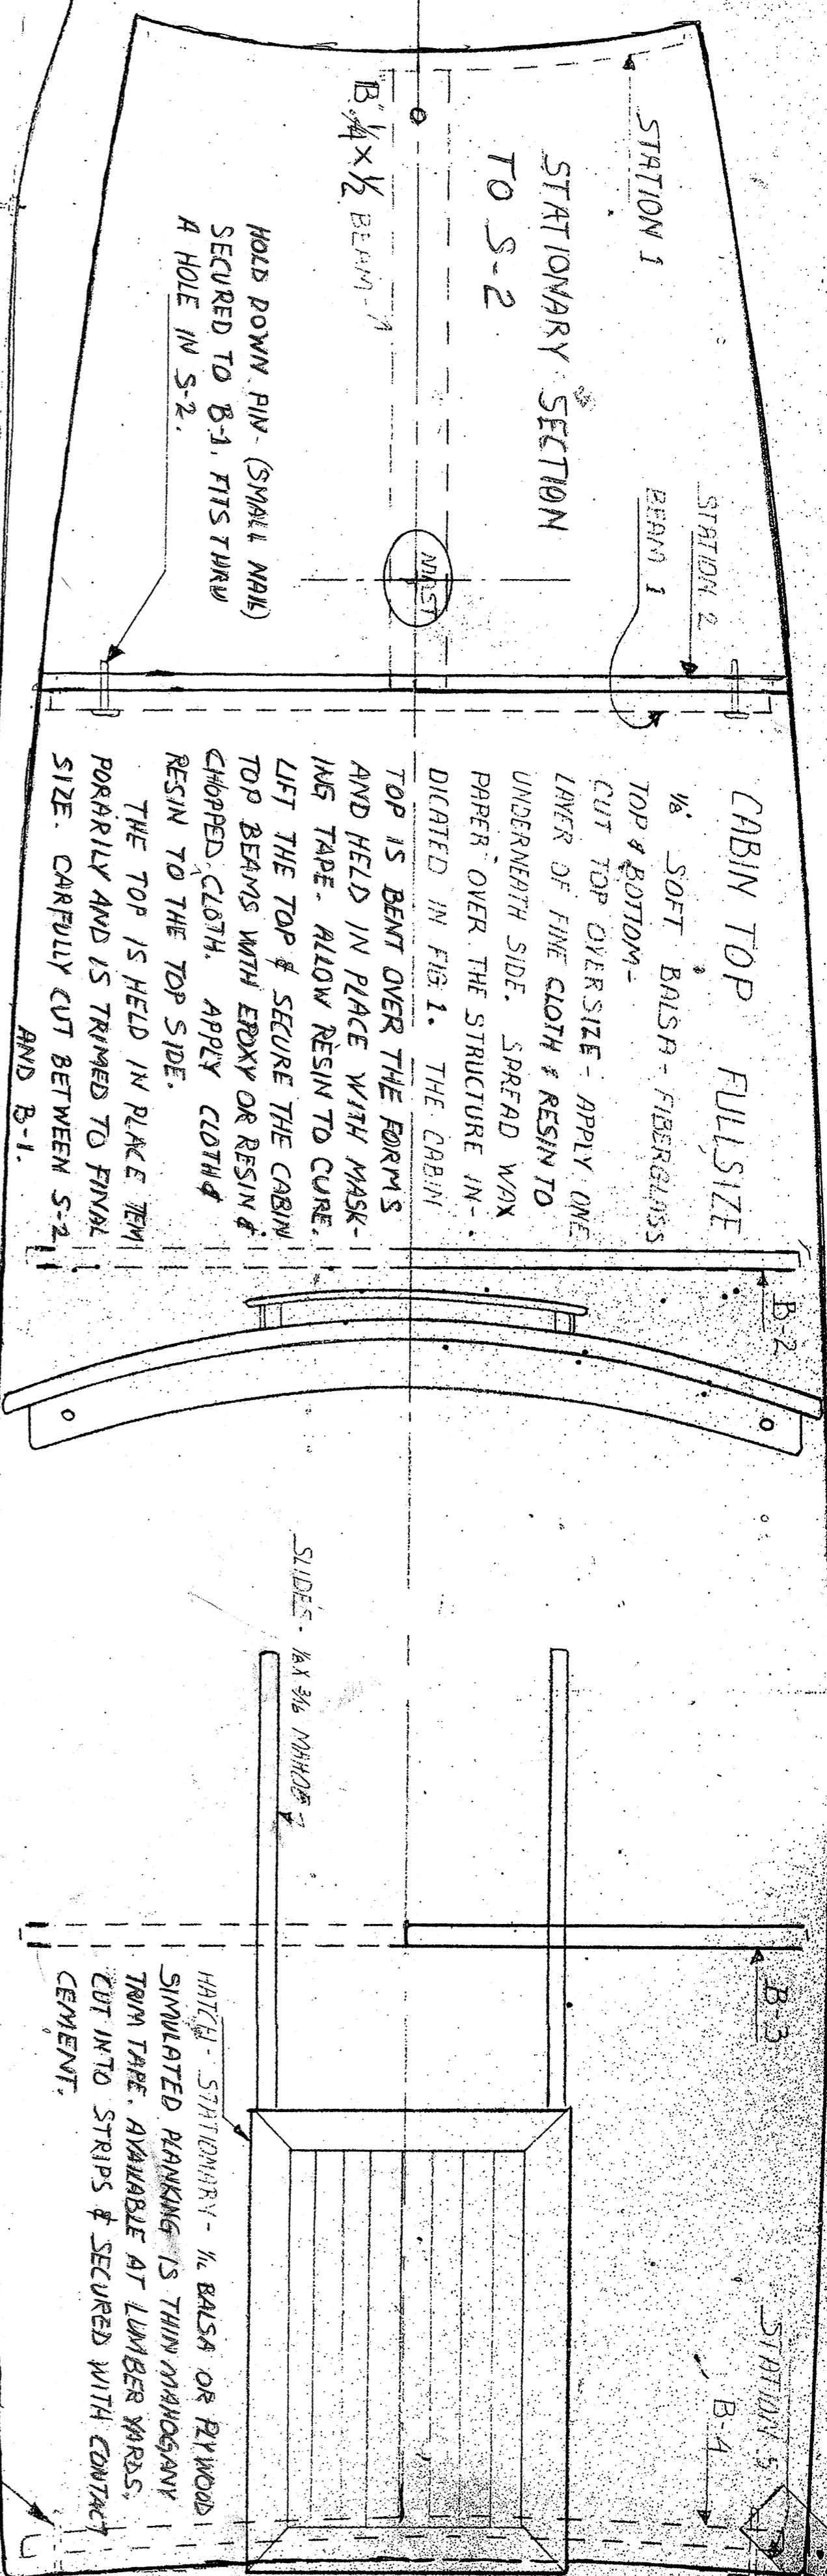 STATION 1
STATIONARY SECTION
TO S-2
B. 1/4 X 1/2 BEAM
HOLD DOWN PIN- (SMALL NAIL)
SECURED TO B-1. FITS THRU
A HOLE IN S-2.
STATION 2
BEAM 1
MAST
CABIN TOP FULLSIZE
1/8" SOFT BALSA - FIBERGLASS
TOP & BOTTOM-
CUT TOP OVERSIZE - APPLY ONE
LAYER OF FINE CLOTH & RESIN TO
UNDERNEATH SIDE. SPREAD WAX
PAPER OVER THE STRUCTURE IN-
DICATED IN FIG 1. THE CABIN
TOP IS BENT OVER THE FORMS
AND HELD IN PLACE WITH MASK-
ING TAPE. ALLOW RESIN TO CURE.
LIFT THE TOP & SECURE THE CABIN
TOP BEAMS WITH EPOXY OR RESIN &
CHOPPED CLOTH. APPLY CLOTH &
RESIN TO THE TOP SIDE.
THE TOP IS HELD IN PLACE TEM
PORARILY AND IS TRIMED TO FINAL
SIZE. CAREFULLY CUT BETWEEN S-2
AND B-1.
B-2
SLIDES - 1/8 X 3/16 MAHOG
B-3
HATCH - STATIONARY - 1/16 BALSA OR PLYWOOD
SIMULATED PLANKING IS THIN MAHOGANY
TRIM TAPE. AVAILABLE AT LUMBER YARDS.
CUT INTO STRIPS & SECURED WITH CONTACT
CEMENT.
STATION 5
B-4